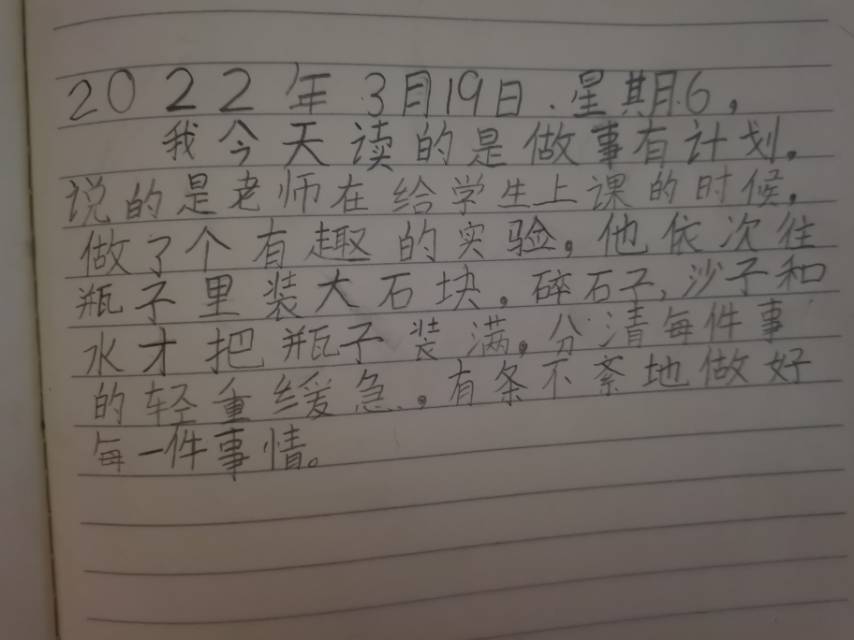 2022年3月19日.星期6，
我今天读的是做事有计划。
说的是老师在给学生上课的时候，
做了个有趣的实验。他依次往
瓶子里装大石块。碎石子,沙子和
水才把瓶子装满。分清每件事
的轻重缓急。，有条不紊地做好
每一件事情。